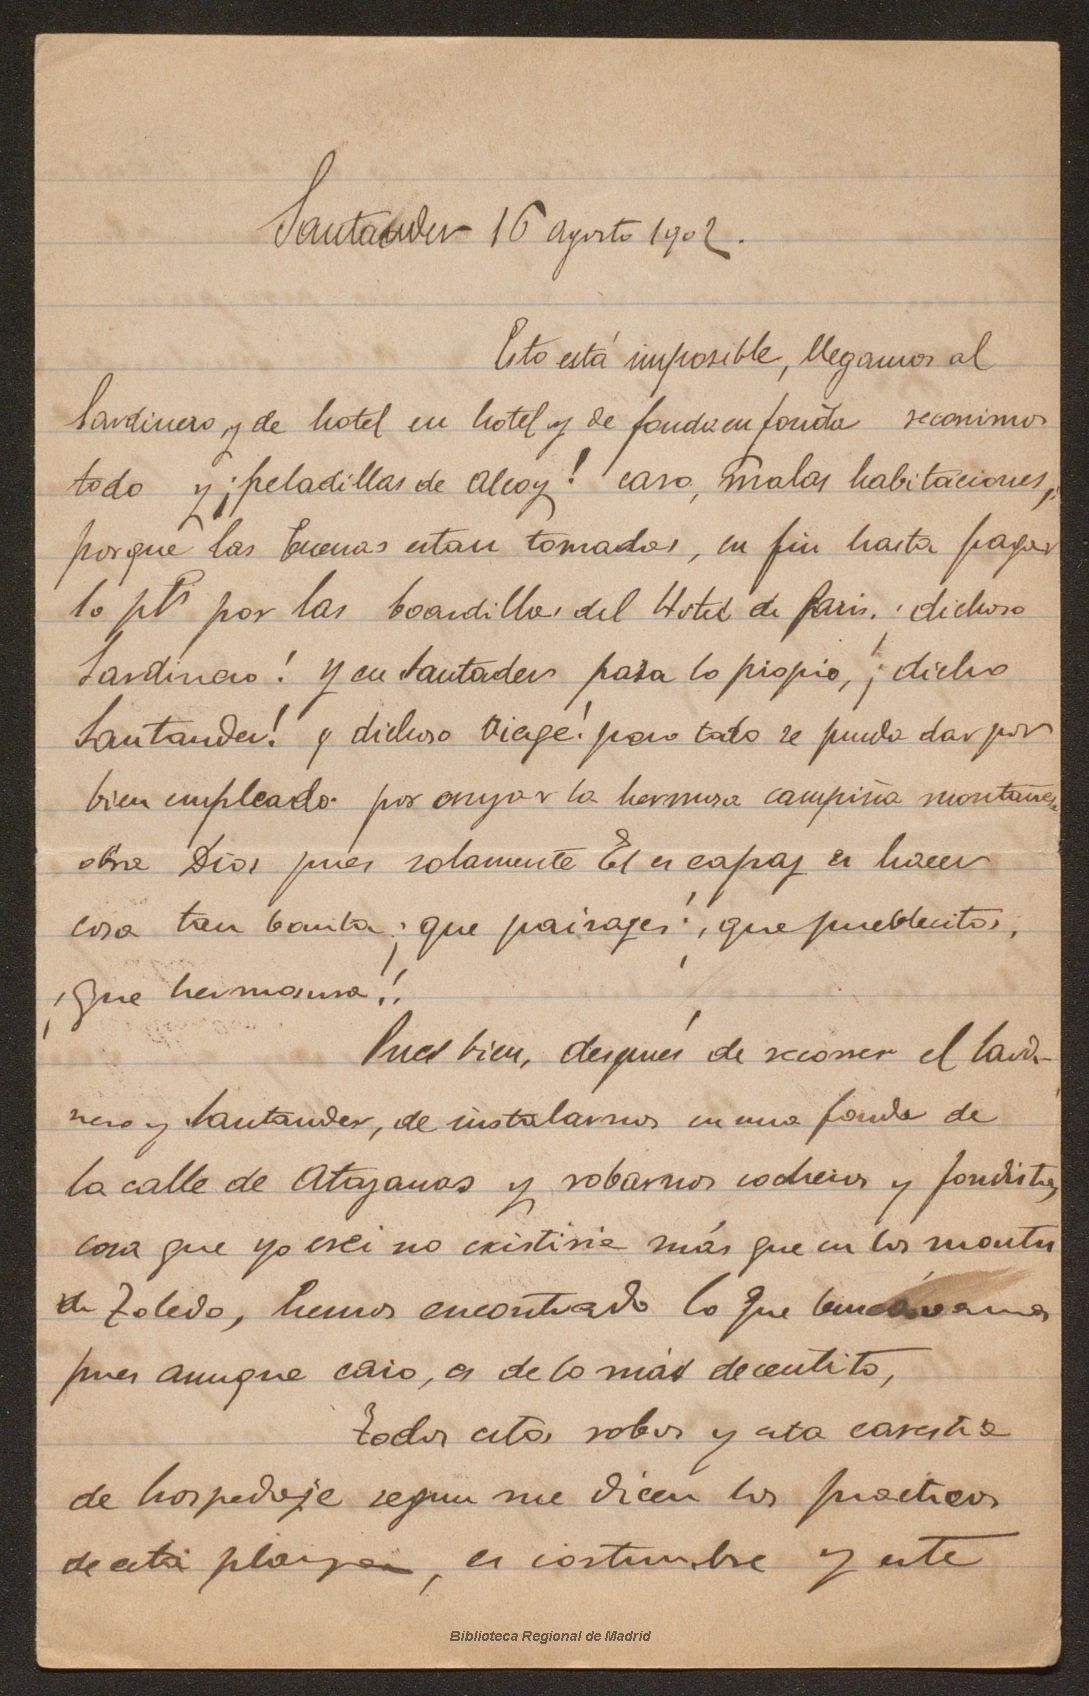 Santander 16 agosto 1902.
Esto está imposible, llegamos al
Sardinero, y de hotel en hotel y de fonda en fonda recorrimos
todo y ¡peladillas de Alcoy! caro, malas habitaciones,
porque las buenas estan tomadas, en fin hasta pagar
10 pts por las boardillas del Hotel de Paris. ¡dichoso
Sardinero! y en Santader pasa lo propio, ¡dicho
Santander! y dichoso viage! pero todo se puede dar por
bien empleado por la hermosa campiña montañesa
obra Dios pues solamente El es capaz es hacer
cosa tan bonita; ¡que paisages!, ¡que pueblecitos,
¡Que hermosura!!
Pues bien, después de recorrer el Sardi-
nero y Santander, de instalarnos en una fonda de
la calle de Atazanas y robarnos cocheros y fondistas
cosa que yo creí no existiria más que en los montes
de Toledo, hemos encontrado lo que buscávamos
pues aunque caro, es de lo más decentito,
Todos estos robos y esta carestia
de hospedaje segun me dicen los practicos
de esta playa, es costumbre y este
Biblioteca Regional de Madrid